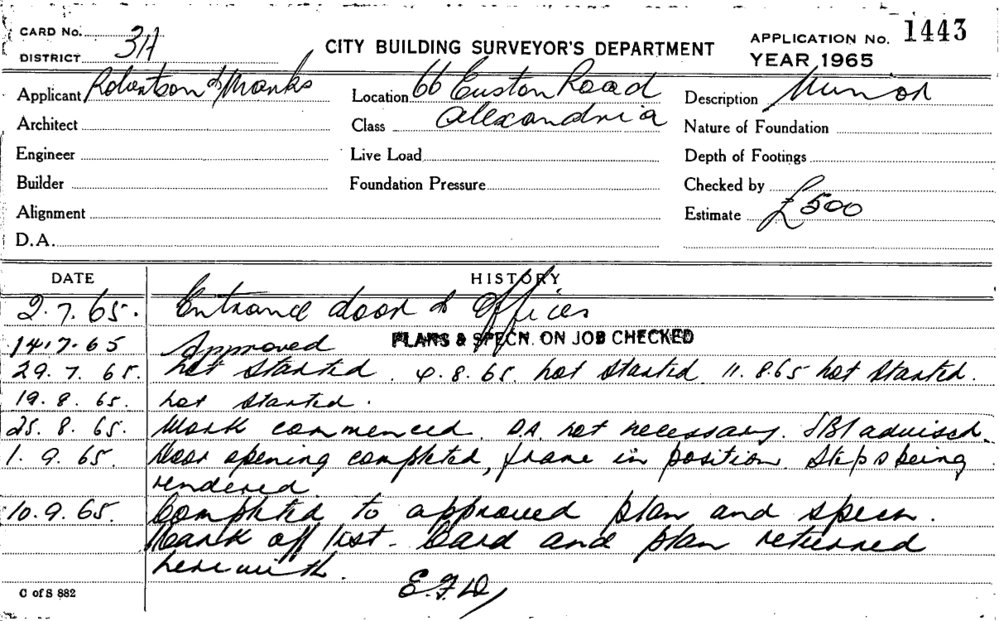 CARD No.
DISTRICT 3H
CITY BUILDING SURVEYOR'S DEPARTMENT
APPLICATION No. 1443
YEAR 1965
Applicant Robertson & Manks
Location 66 Euston Road
Description Minor
Architect
Class Alexandria
Nature of Foundation
Engineer
Live Load
Depth of Footings
Builder
Foundation Pressure
Checked by
Alignment
Estimate £500
D.A.
DATE HISTORY
2.7.65. Entrance door to Offices
14.7.65 Approved PLANS & SPECN. ON JOB CHECKED
29.7.65. not started. 4.8.65. not started. 11.8.65 not started.
19.8.65. not started.
25.8.65. Work commenced. DA not necessary. SBI advised.
1.9.65. Door opening completed, frame in position. Steps being
rendered
10.9.65. Completed to approved plan and specn.
Mark off list - Card and plan returned
herewith.
E.F.D,
C of S 882